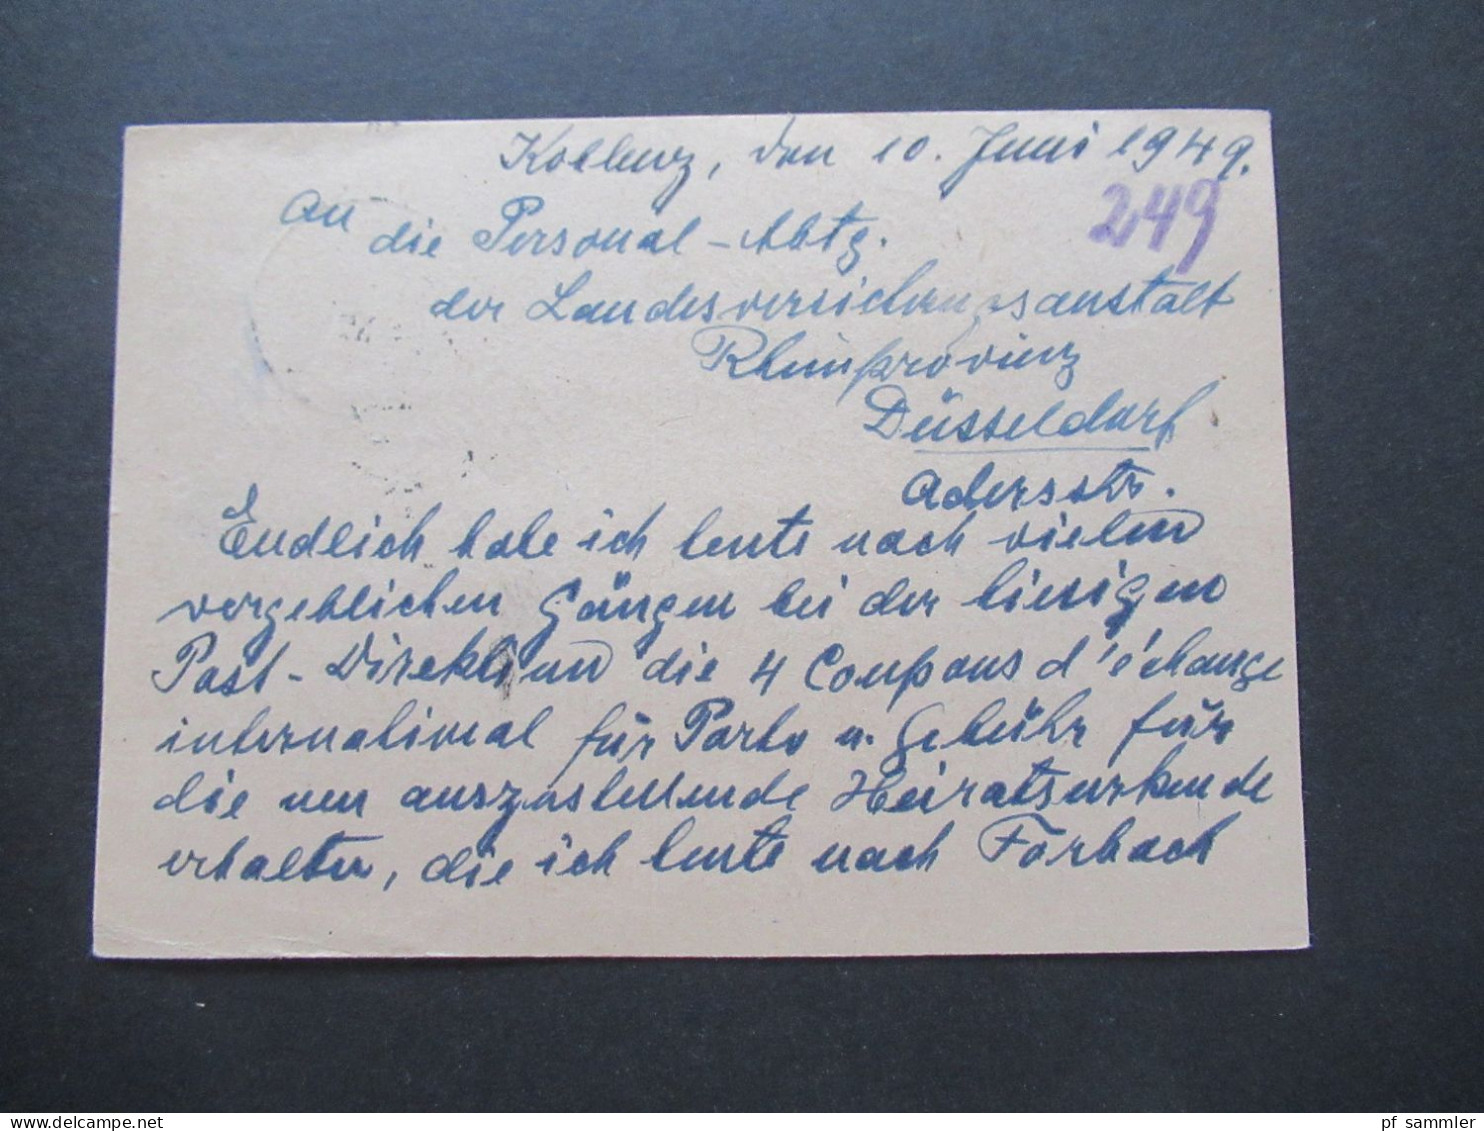 Koblenz, den 10. Juni 1949.
249
An die Personal-Abtg.
der Landesversicherungsanstalt
Rheinprovinz
Düsseldorf
Adersstr.
Endlich habe ich heute nach vielen
vergeblichen Gängen bei der hiesigen
Post-Direktion die 4 Coupons d'échange
international für Porto u. Gebühr für
die neu auszustellende Heiratsurkunde
erhalten, die ich heute nach Forbach
www.delcampe.net
pf_sammler